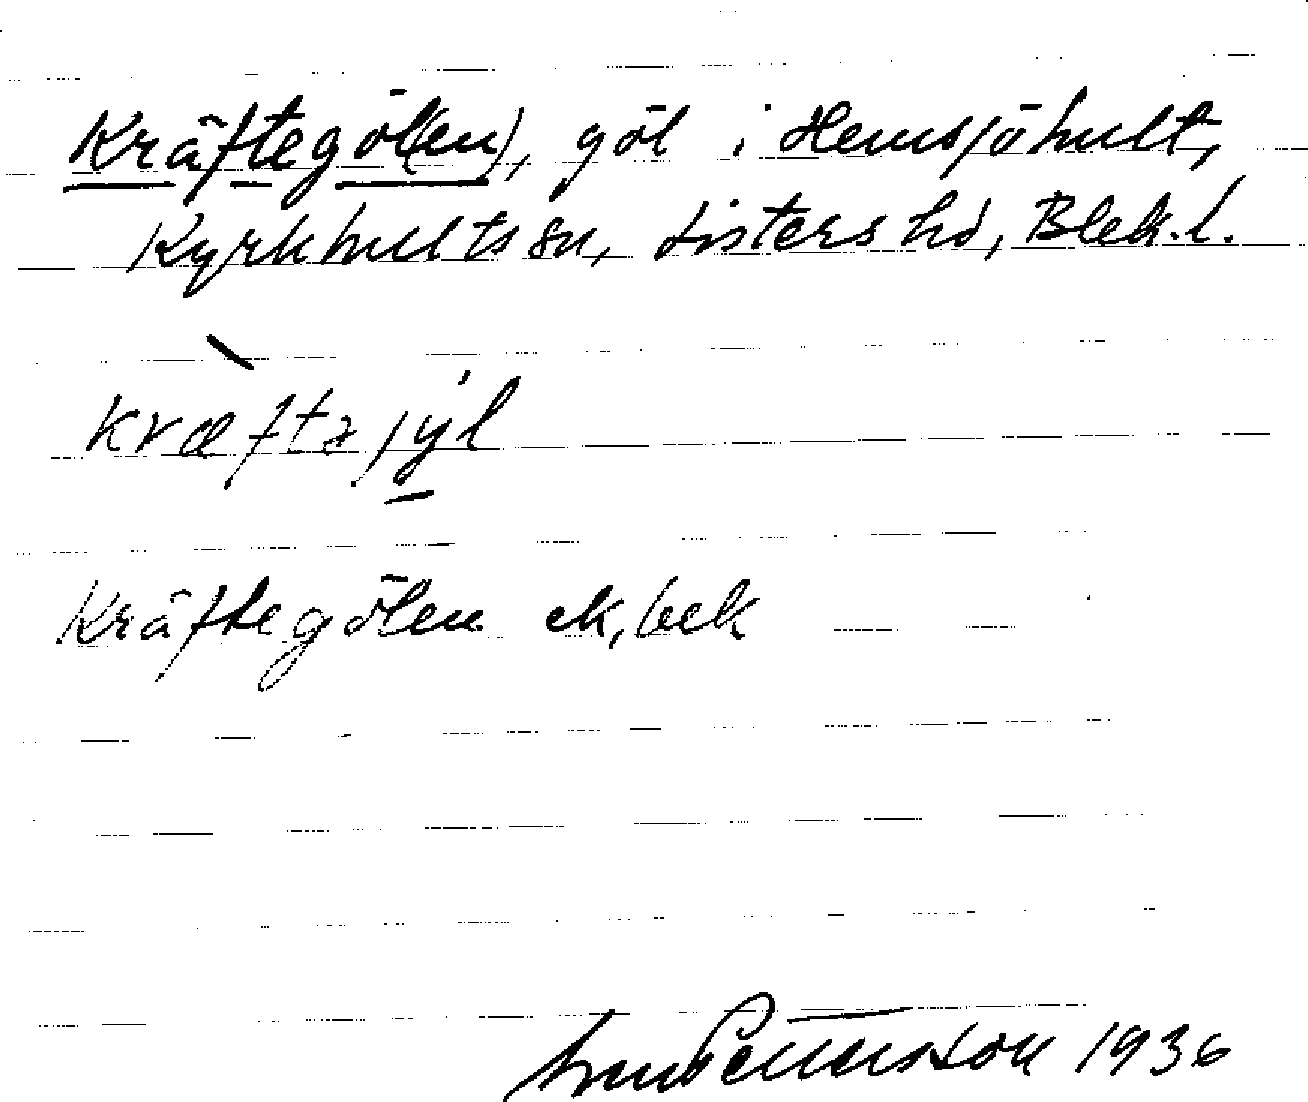 Kräftegöl(en), göl i Hemsjöhult,
Kyrkhults sn, Listers hd, Blek.l.
kræftəjyl
Kräftegölen ek, bek
Pettersson 1936